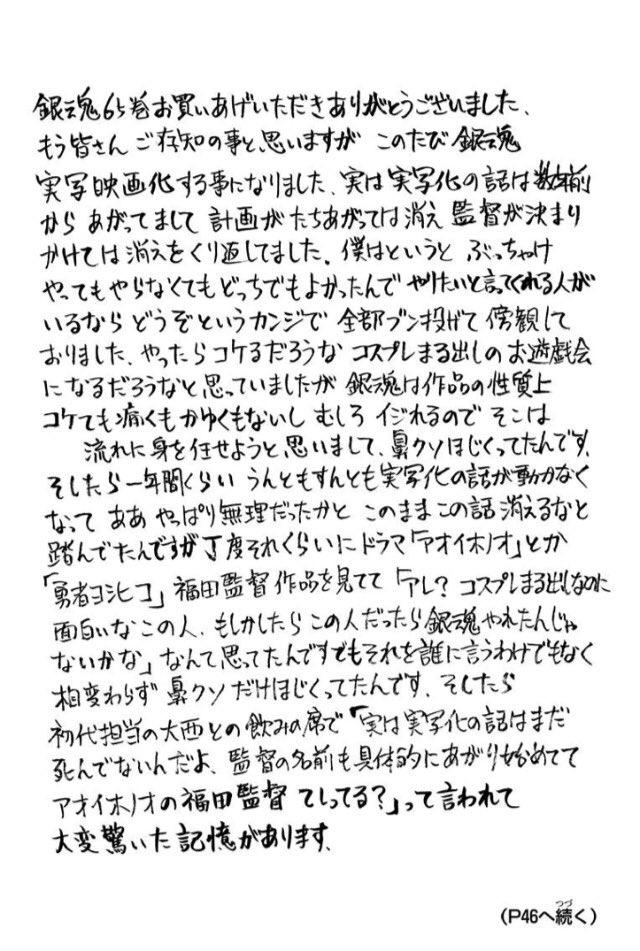 銀魂65巻お買いあげいただきありがとうございました、
もう皆さんご存知の事と思いますが このたび銀魂
実写映画化する事になりました、実は実写化の話は数年前
から あがってまして 計画がたちあがっては消え 監督が決まり
かけては消えをくり返してました、僕はというと ぶっちゃけ
やってもやらなくてもどっちでもよかったんで やりたいと言ってくれる人が
いるなら どうぞというカンジで 全部ブン投げて 傍観して
おりました、やったらコケるだろうな コスプレまる出しのお遊戯会
になるだろうなと思っていましたが 銀魂は作品の性質上
コケても痛くもかゆくもないし むしろ イジれるので そこは
流れに身を任せようと思いまして、鼻クソほじくってたんです、
そしたら一年間くらい うんともすんとも実写化の話が動かなく
なって ああ やっぱり無理だったかと このままこの話消えるなと
踏んでたんですが丁度それくらいにドラマ「アオイホノオ」とか
「勇者ヨシヒコ」福田監督作品を見てて 「アレ? コスプレまる出しなのに
面白いなこの人、もしかしたらこの人だったら銀魂やれたんじゃ
ないかな」なんて思ってたんですでもそれを誰に言うわけでもなく
相変わらず鼻クソだけほじくってたんです、そしたら
初代担当の大西との飲みの席で「実は実写化の話はまだ
死んでないんだよ、監督の名前も具体的にあがり始めてて
アオイホノオの福田監督てしってる?」って言われて
大変驚いた記憶があります、
(P46へ続く)
つづ